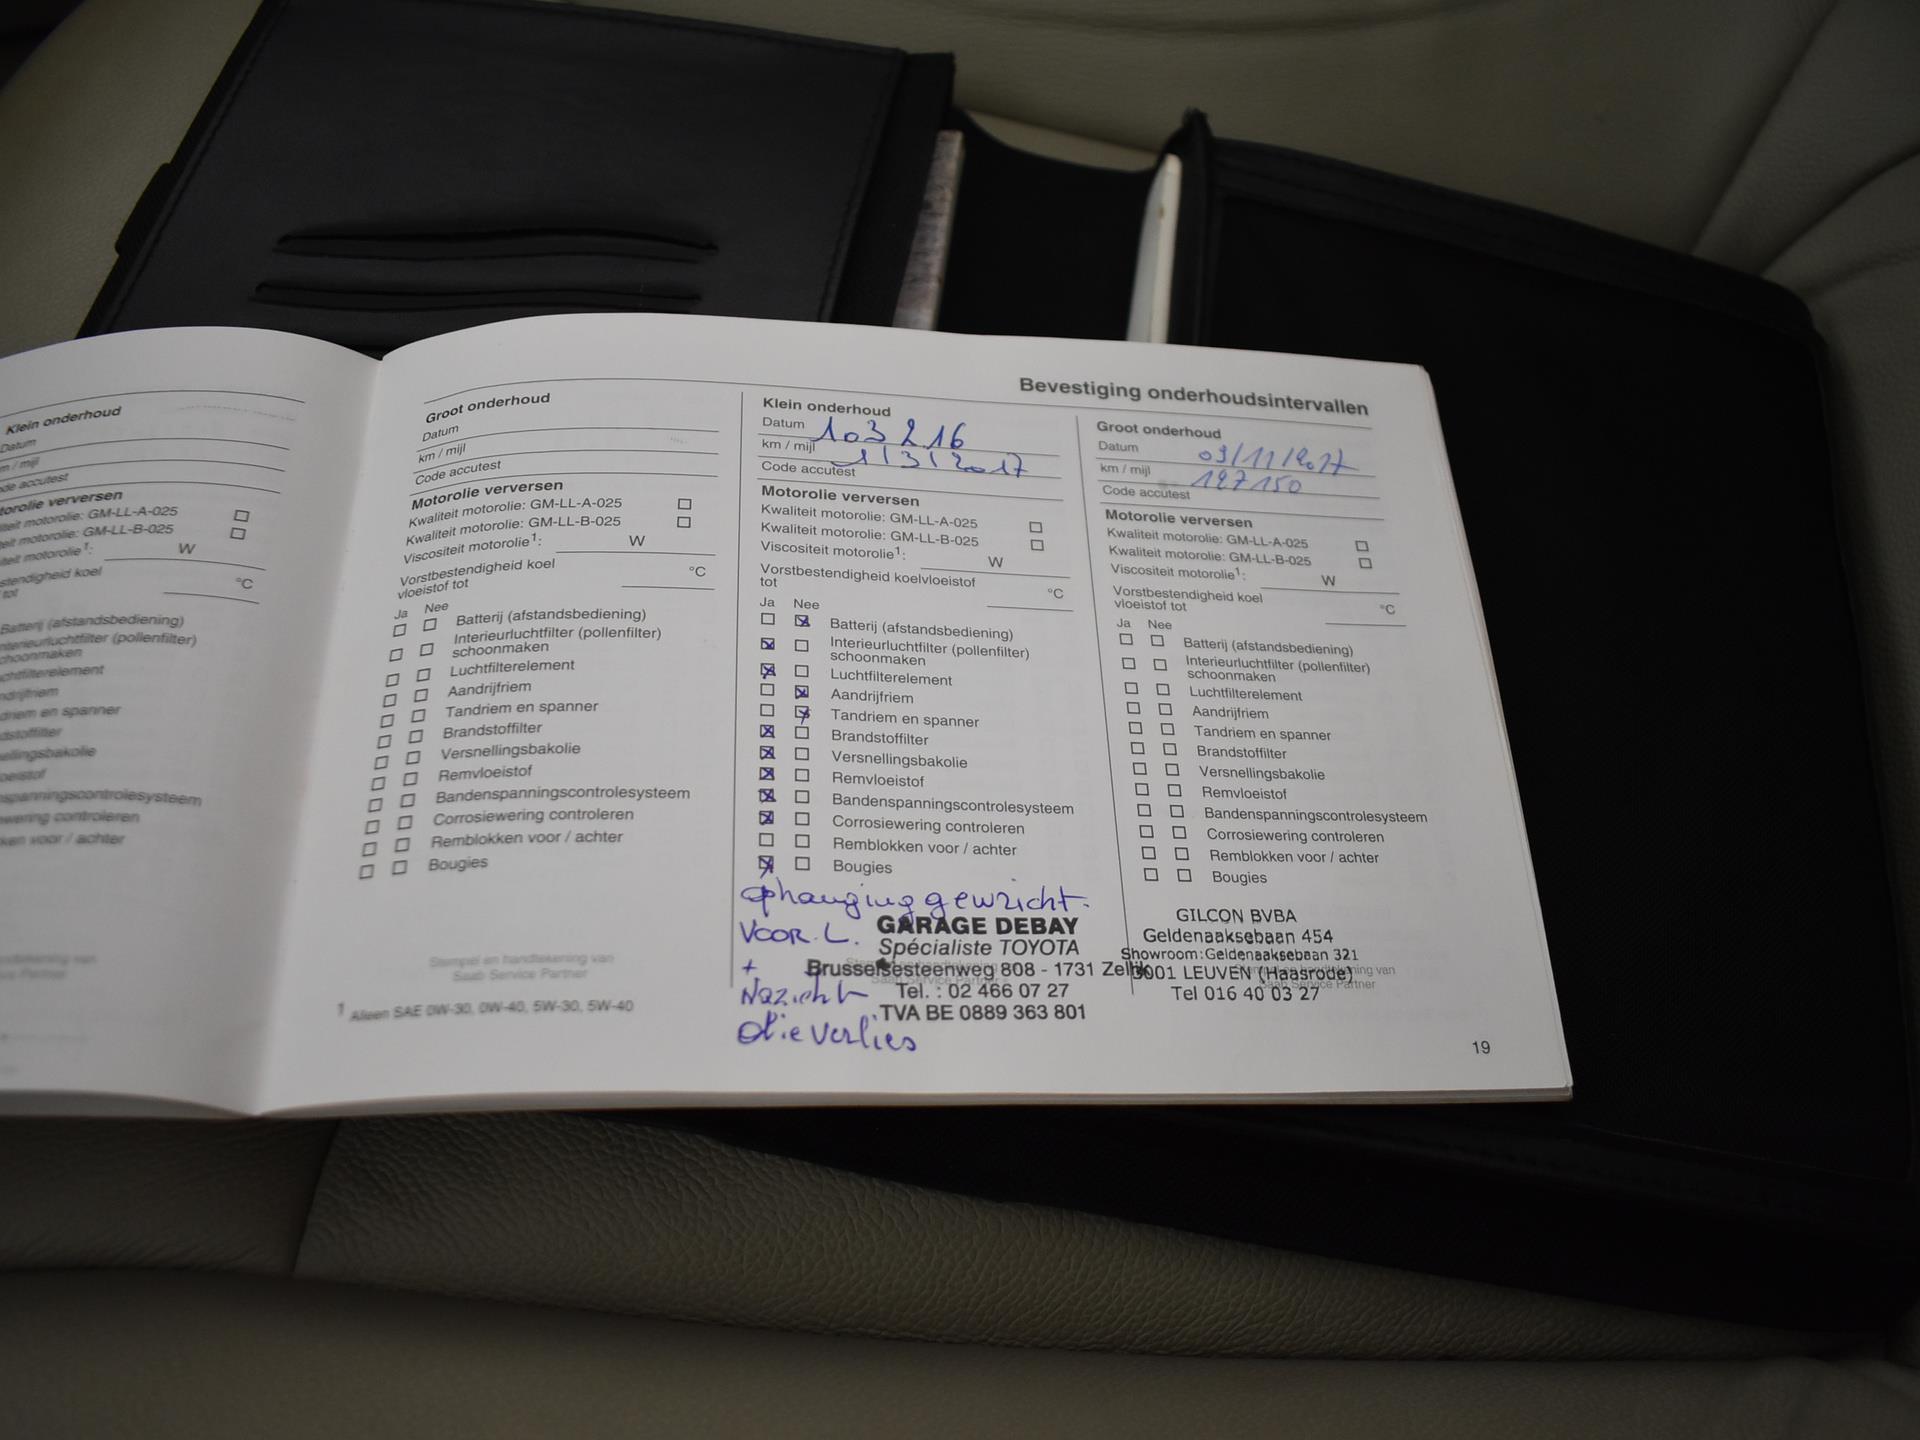 Klein onderhoud
Datum
km / mijl
Code accutest
Motorolie verversen
Kwaliteit motorolie: GM-LL-A-025
Kwaliteit motorolie: GM-LL-B-025
motorolie1:
W
koel
°C
Batterij (afstandsbediening)
Interieurluchtfilter (pollenfilter)
schoonmaken
Luchtfilterelement
en spanner
Bevestiging onderhoudsintervallen
Groot onderhoud
Datum
km / mijl
Code accutest
Motorolie verversen
Kwaliteit motorolie: GM-LL-A-025
Kwaliteit motorolie: GM-LL-B-025
Viscositeit motorolie1:
W
Vorstbestendigheid koel
vloeistof tot
°C
Ja Nee
Batterij (afstandsbediening)
Interieurluchtfilter (pollenfilter)
schoonmaken
Luchtfilterelement
Aandrijfriem
Tandriem en spanner
Brandstoffilter
Versnellingsbakolie
Remvloeistof
Bandenspanningscontrolesysteem
Corrosiewering controleren
Remblokken voor / achter
Bougies
Stempel en handtekening van
Saab Service Partner
1 Alleen SAE 0W-30, 0W-40, 5W-30, 5W-40
Klein onderhoud
Datum 103 216
km / mijl 1/3/2017
Code accutest
Motorolie verversen
Kwaliteit motorolie: GM-LL-A-025
Kwaliteit motorolie: GM-LL-B-025
Viscositeit motorolie1:
W
Vorstbestendigheid koelvloeistof
tot
°C
Ja Nee
Batterij (afstandsbediening)
Interieurluchtfilter (pollenfilter)
schoonmaken
Luchtfilterelement
Aandrijfriem
Tandriem en spanner
Brandstoffilter
Versnellingsbakolie
Remvloeistof
Bandenspanningscontrolesysteem
Corrosiewering controleren
Remblokken voor / achter
Bougies
ophanging gewricht.
VOOR L.
+
Nazicht
Olieverlies
GARAGE DEBAY
Spécialiste TOYOTA
Brusselsesteenweg 808 - 1731 Zellik
Tel. : 02 466 07 27
TVA BE 0889 363 801
Groot onderhoud
Datum 03/11/2017
km / mijl 127150
Code accutest
Motorolie verversen
Kwaliteit motorolie: GM-LL-A-025
Kwaliteit motorolie: GM-LL-B-025
Viscositeit motorolie1:
W
Vorstbestendigheid koel
vloeistof tot
°C
Ja Nee
Batterij (afstandsbediening)
Interieurluchtfilter (pollenfilter)
schoonmaken
Luchtfilterelement
Aandrijfriem
Tandriem en spanner
Brandstoffilter
Versnellingsbakolie
Remvloeistof
Bandenspanningscontrolesysteem
Corrosiewering controleren
Remblokken voor / achter
Bougies
GILCON BVBA
Geldenaaksebaan 454
Showroom:Geldenaaksebaan 321
3001 LEUVEN (Haasrode)
Tel 016 40 03 27
Saab Service Partner
19